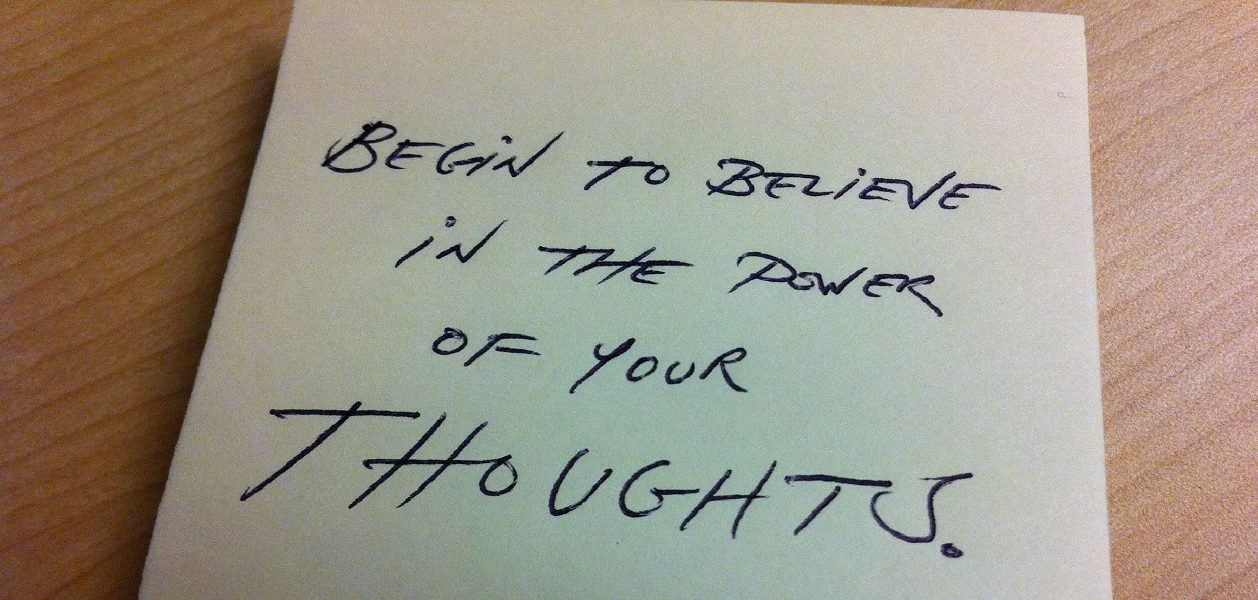 BEGiN TO BELiEVE
iN THE POWER
OF YOUR
THOUGHTS.